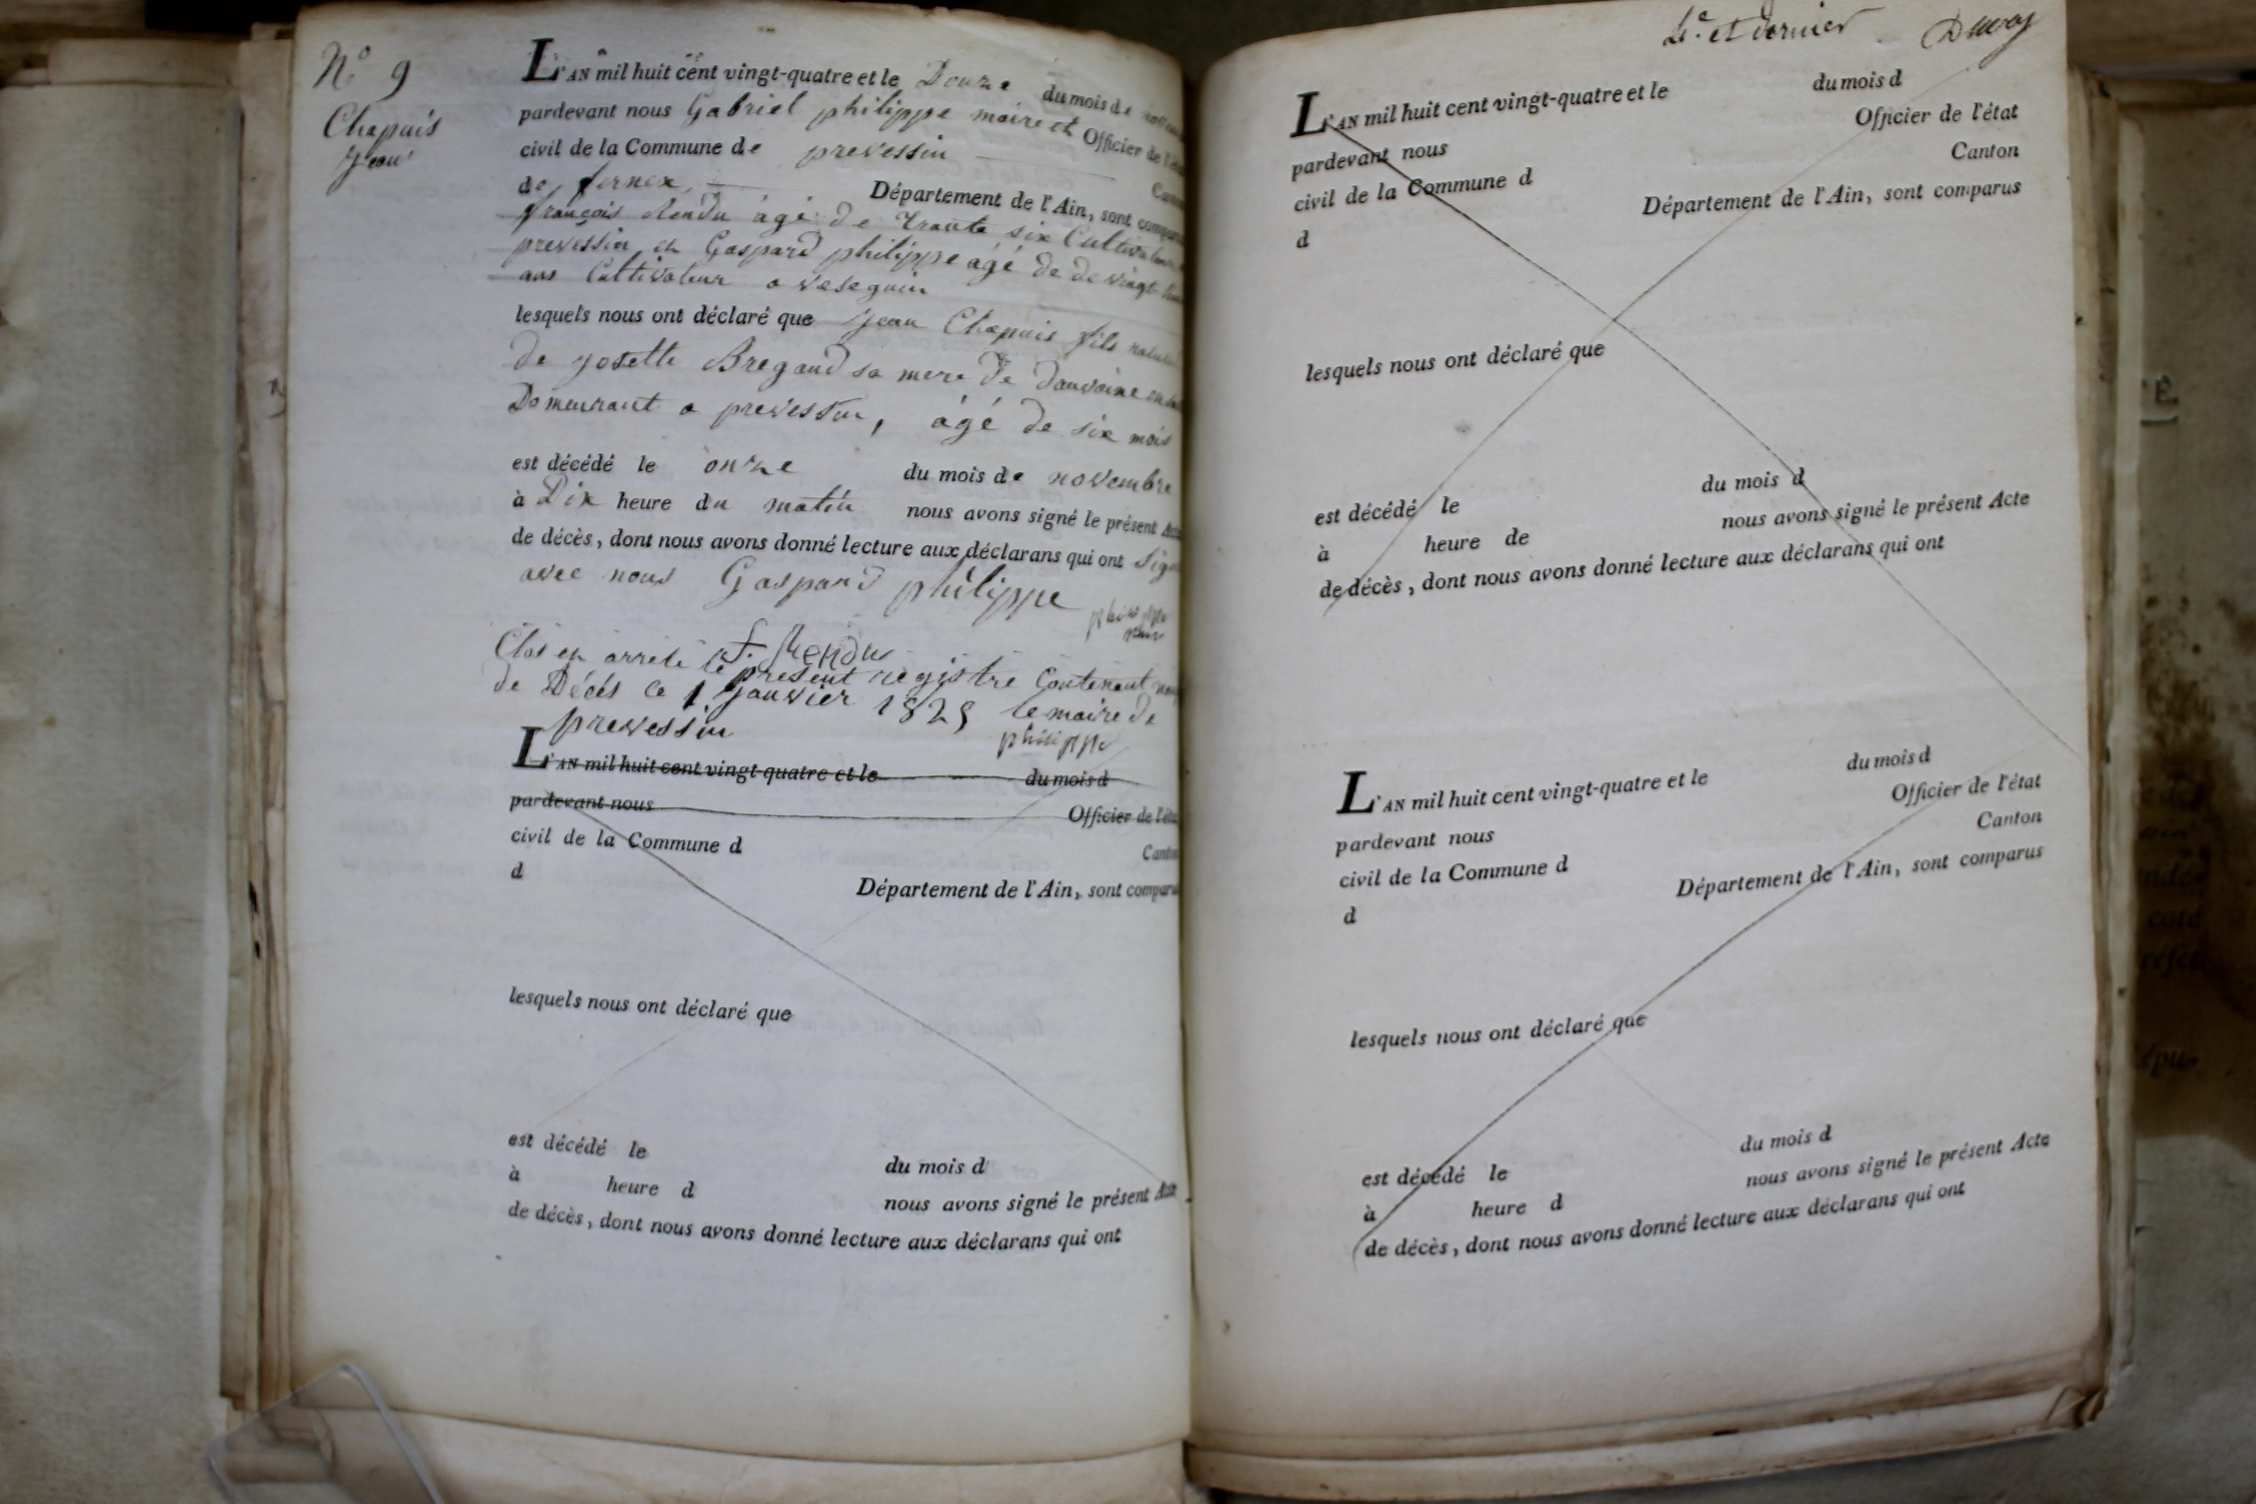 N.° 9
Chapuis
Jean
L'AN mil huit cent vingt-quatre et le Douze du mois de
pardevant nous Gabriel philippe maire et Officier de l'état
civil de la Commune de prevessin
de fernex Département de l'Ain, sont comparus
françois Rendu âgé de Trante six Cultivateur
prevessin et Gaspard philippe âgé de de vingt
ans Cultivateur a vesegnin
lesquels nous ont déclaré que Jean Chapuis fils naturel
de josette Bregand sa mere de Douvaine
Demeurant a prevessin, âgé de six mois
est décédé le onze du mois de novembre
à Dix heure du matin nous avons signé le présent Acte
de décès, dont nous avons donné lecture aux déclarans qui ont signé
avec nous Gaspard philippe
philippe
maire
f. Rendu
Clos et arrêté le present registre Contenant
de Décés le 1 Janvier 1825 le maire de
prevessin philippe
L'AN mil huit cent vingt-quatre et le du mois d
pardevant nous Officier de l'état
civil de la Commune d Canton
d Département de l'Ain, sont comparus
lesquels nous ont déclaré que
est décédé le du mois d
à heure d nous avons signé le présent Acte
de décès, dont nous avons donné lecture aux déclarans qui ont
4.e et dernier
L'AN mil huit cent vingt-quatre et le du mois d
pardevant nous Officier de l'état
civil de la Commune d Canton
d Département de l'Ain, sont comparus
lesquels nous ont déclaré que
est décédé le du mois d
à heure de nous avons signé le présent Acte
de décès, dont nous avons donné lecture aux déclarans qui ont
L'AN mil huit cent vingt-quatre et le du mois d
pardevant nous Officier de l'état
civil de la Commune d Canton
d Département de l'Ain, sont comparus
lesquels nous ont déclaré que
est décédé le du mois d
à heure d nous avons signé le présent Acte
de décès, dont nous avons donné lecture aux déclarans qui ont